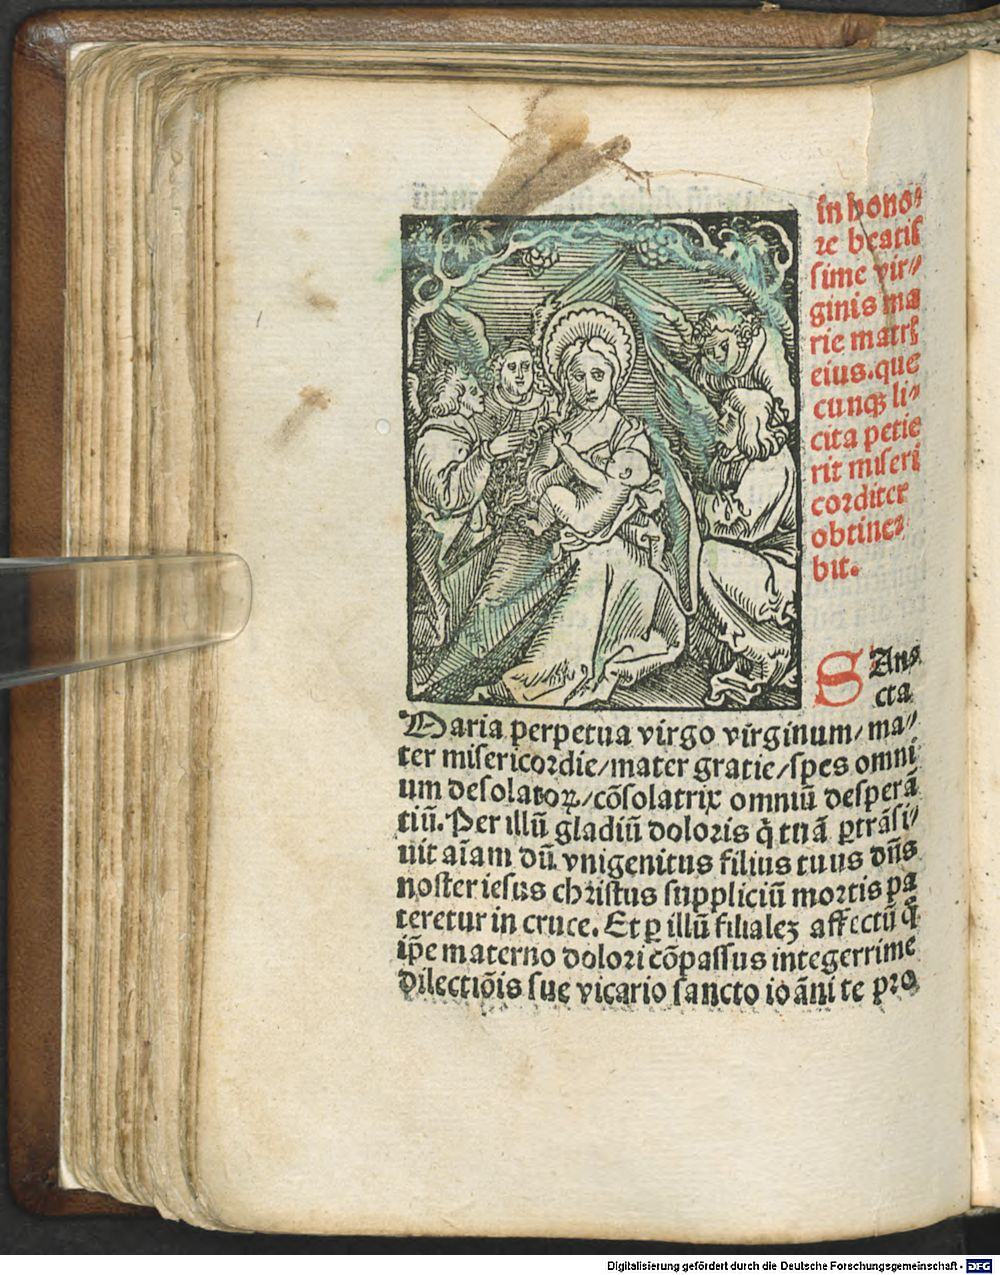 in hono⸗
re beatiſ
ſime vir⸗
ginis ma
rie matrꝭ
eius. que
cunqꝫ li⸗
cita petie
rit miſeri
corditer
obtine⸗
bit.
SAn⸗
cta
Maria perpetua virgo virginum/ ma⸗
ter miſericordie/mater gratie/ſpes omni
um deſolatoꝝ/cōſolatrix omniū deſperā
tiū. Per illū gladiū doloris q̄ tuā ꝑtrāſi⸗
uit aīam dū vnigenitus filius tuus dn̄s
noſter ieſus chriſtus ſuppliciū mortis pa
teretur in cruce. Et ꝑ illū filialeꝫ affectū q̄
ip̄e materno dolori cōpaſſus integerrime
dilectiōis ſue vicario ſancto ioāni te pro
Digitalisierung gefördert durch die Deutsche Forschungsgemeinschaft - DFG